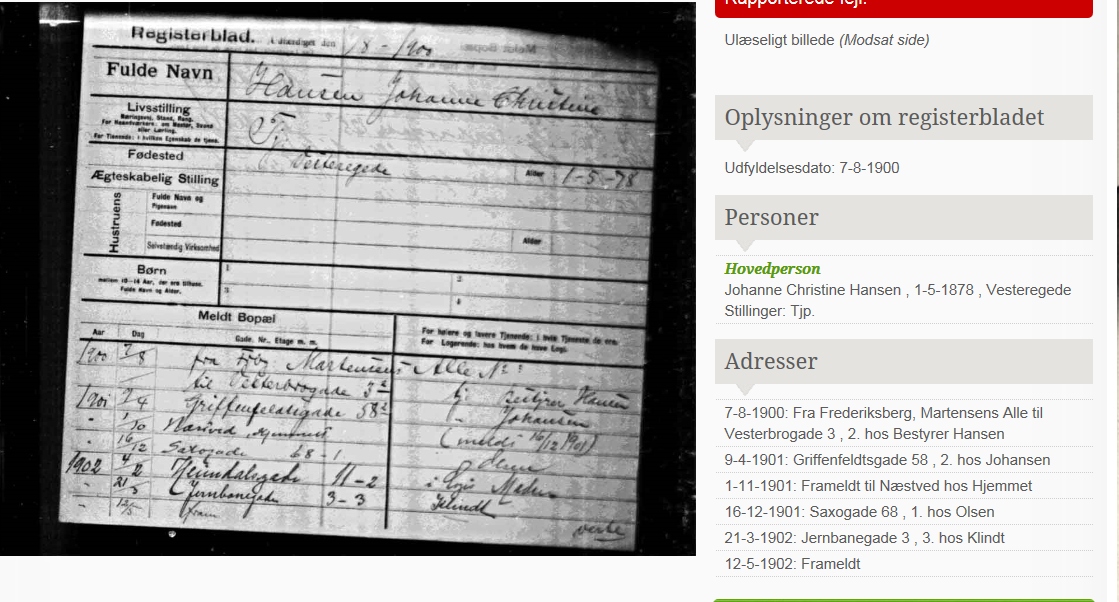 Rapporterede fejl:
Ulæseligt billede (Modsat side)
Registerblad. Udfærdiget den 7/8 - 1900
Fulde Navn Hansen Johanne Christine
Livsstilling
Næringsvej, Stand, Rang.
For Haandværkere: om Mester, Svend
eller Lærling.
For Tjenende: i hvilken Egenskab de tjene.
Tj.
Fødested Vesteregede Alder 1-5-78
Ægteskabelig Stilling
Hustruens
Fulde Navn og
Pigenavn
Fødested Alder
Selvstændig Virksomhed
Børn 1 2
mellem 10-14 Aar, der ere tilhuse.
Fulde Navn og Alder. 3 4
Meldt Bopæl
Aar Dag Gade, Nr., Etage m. m.
For højere og lavere Tjenende: i hvis Tjeneste de ere.
For Logerende: hos hvem de have Logi.
1900 7/8 fra Frbg Martensens Alle No
til Vesterbrogade 3 2 Bestyrer Hansen
1901 9/4 Griffenfeldtsgade 58 2 Johansen
" 1/10 Næstved, Hjemmet (meldt 16/12 1901)
" 16/12 Saxogade 68 - 1 Olsen
1902 4/2 Heimdalsgade 11 - 2
" 21/3 Jernbanegade 3 - 3 Klindt
" 12/5 fram verte
Oplysninger om registerbladet
Udfyldelsesdato: 7-8-1900
Personer
Hovedperson
Johanne Christine Hansen , 1-5-1878 , Vesteregede
Stillinger: Tjp.
Adresser
7-8-1900: Fra Frederiksberg, Martensens Alle til
Vesterbrogade 3 , 2. hos Bestyrer Hansen
9-4-1901: Griffenfeldtsgade 58 , 2. hos Johansen
1-11-1901: Frameldt til Næstved hos Hjemmet
16-12-1901: Saxogade 68 , 1. hos Olsen
21-3-1902: Jernbanegade 3 , 3. hos Klindt
12-5-1902: Frameldt